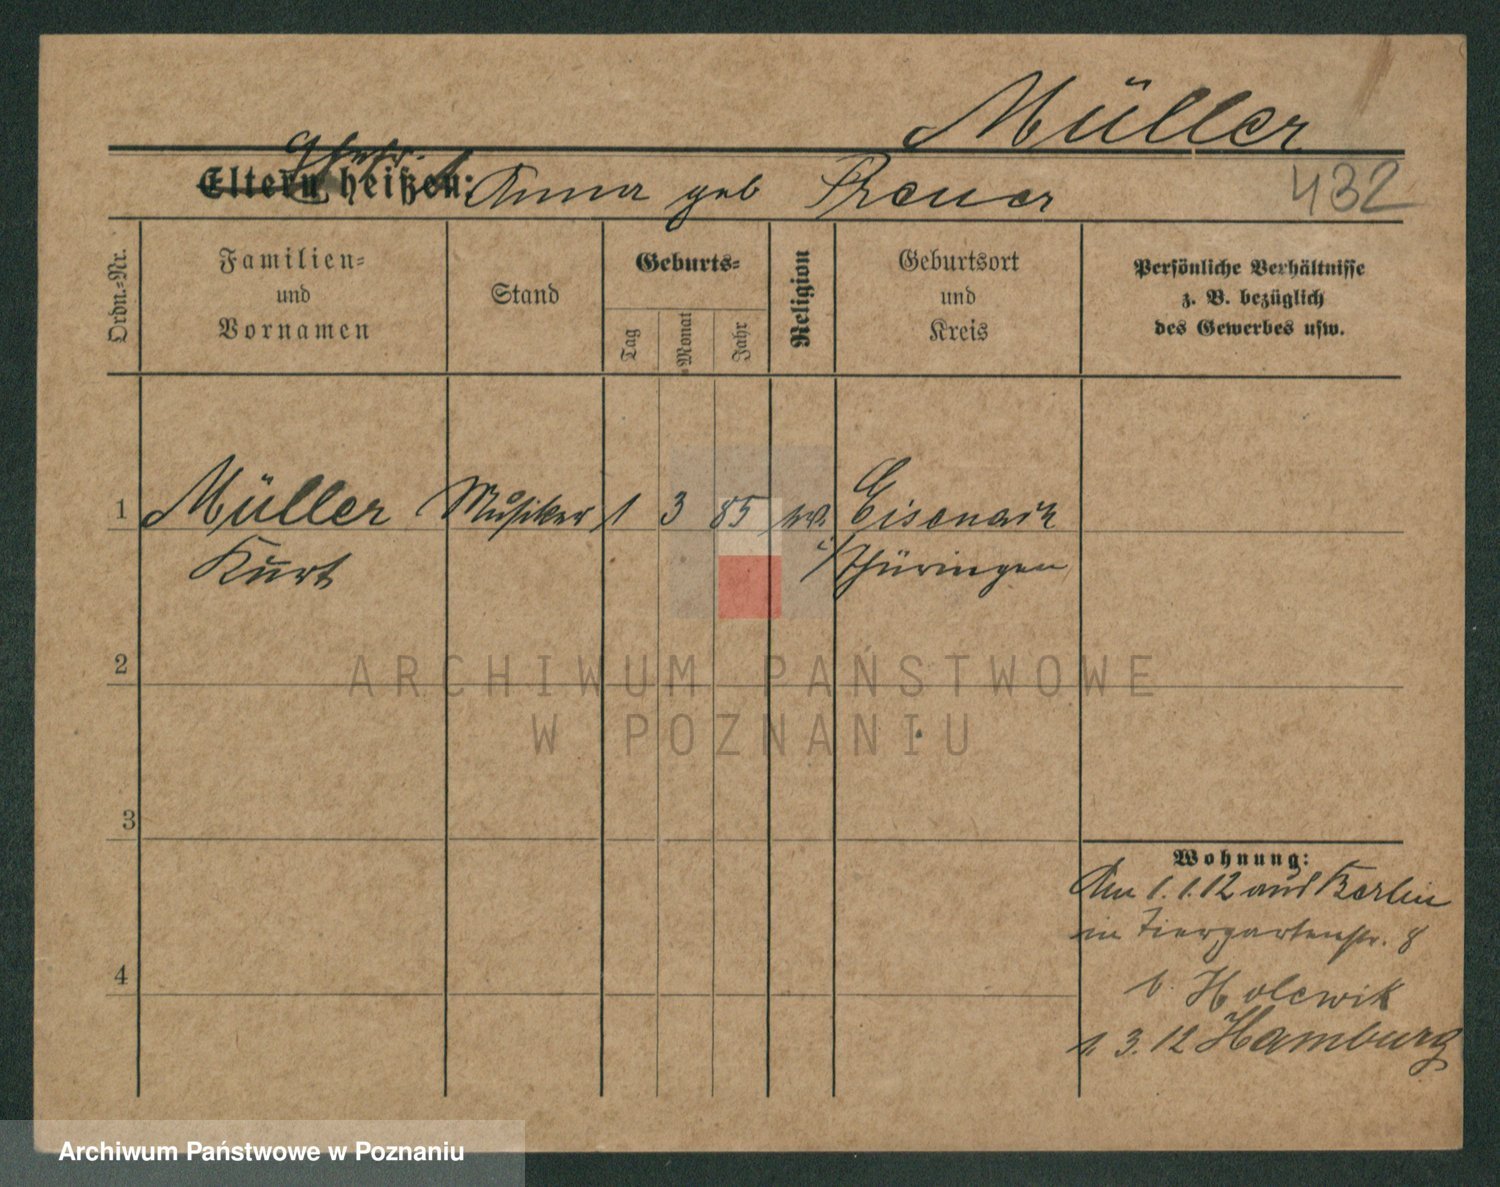 Müller
Eltern heißen: Anna geb Preuer
432
Ordn.-Nr.
Familien-
und
Vornamen
Stand
Geburts-
Tag
Monat
Jahr
Religion
Geburtsort
und
Kreis
Persönliche Verhältnisse
z. B. bezüglich
des Gewerbes usw.
1 Müller Musiker 1 3 85 ev. Eisenach
Kurt i/Thüringen
2
ARCHIWUM PAŃSTWOWE
W POZNANIU
3
Wohnung:
Am 1.1.12 aus Berlin
in Tiergartenstr. 8
b. Holewik
4
1. 3. 12 Hamburg
Archiwum Państwowe w Poznaniu